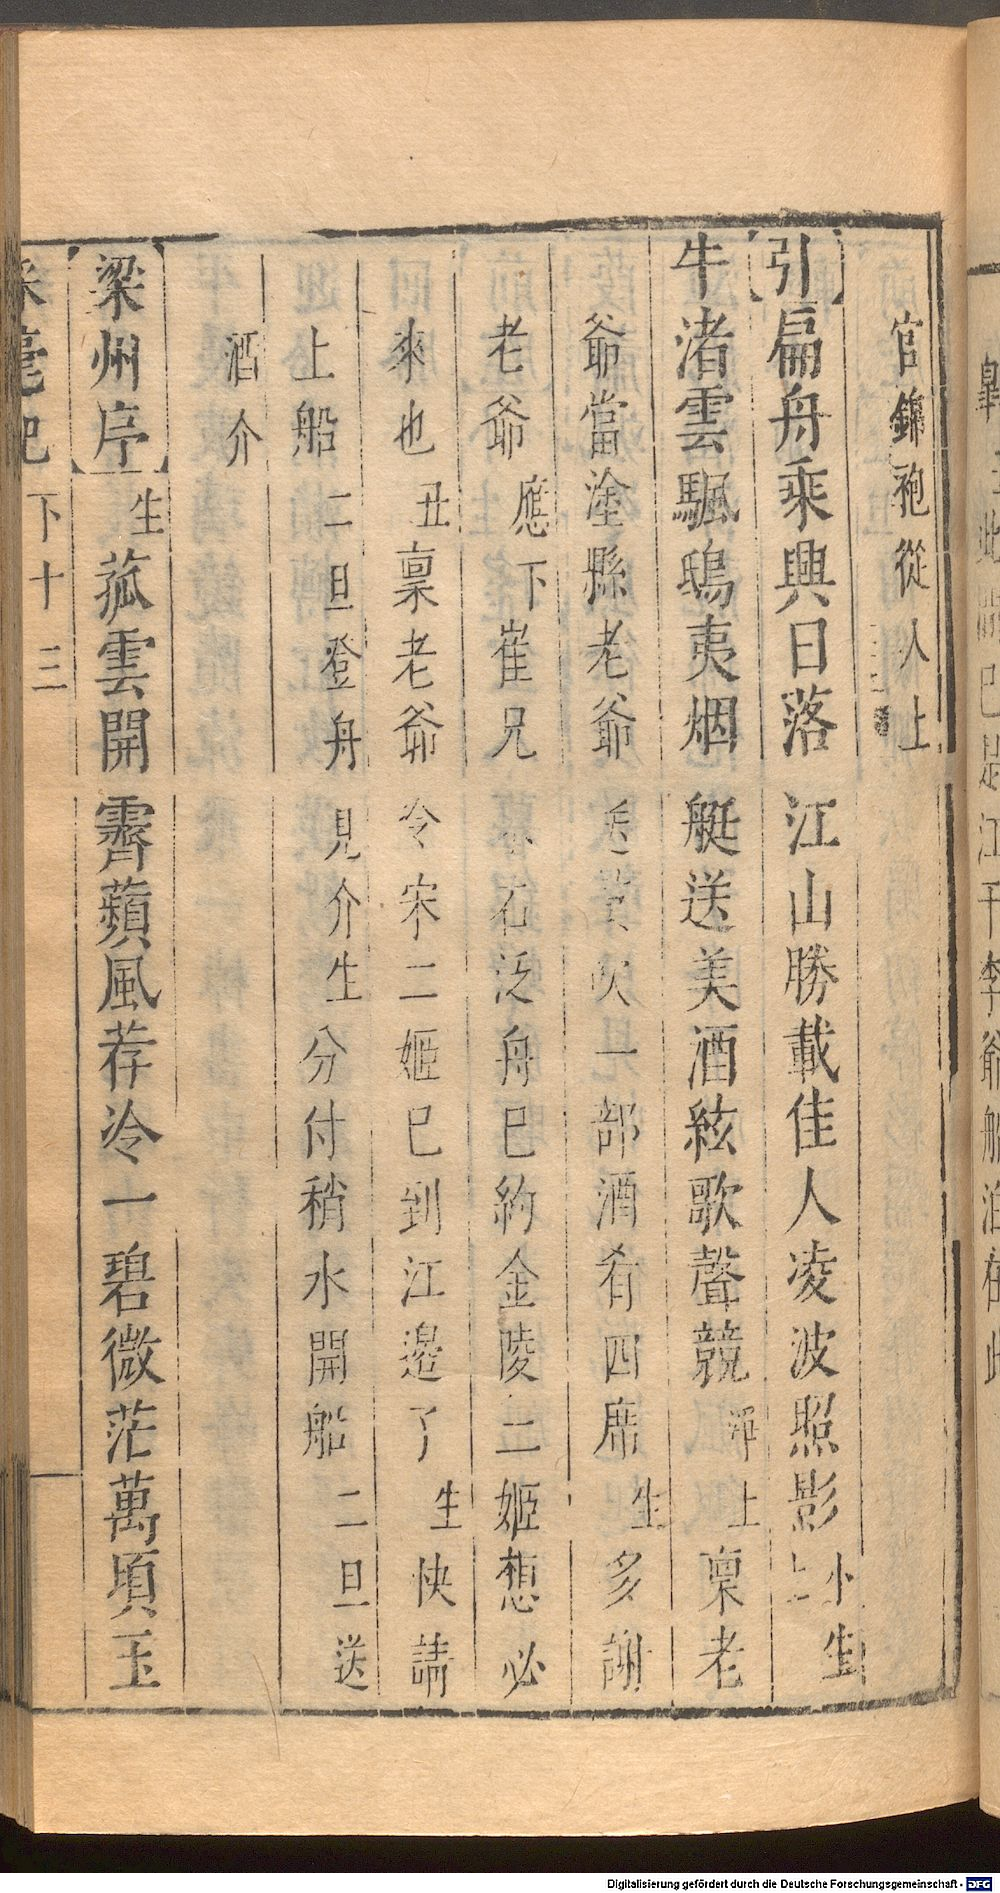 官錦袍從人上
引扁舟乘興日落江山勝載佳人凌波照影小生
上
牛渚雲颿鴟夷烟艇送美酒絃歌聲競淨上稟老
爺當塗縣老爺送一部酒肴四席生多謝
老爺應下崔兄小石泛舟已約金陵二姬想必
來也丑稟老爺令宋二姬已到江邊了生快請
上船二旦登舟見介生分付稍水開船二旦送
酒介
梁州序生菰雲開霽蘋風荐冷一碧微茫萬頃玉
采毫記 下 十三
上此間已是江干李爺船泊在此
Digitalisierung gefördert durch die Deutsche Forschungsgemeinschaft - DFG